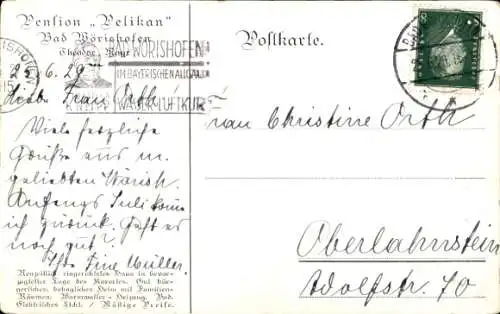 Pension „Pelikan"
Bad Wörishofen
Theodor Mayr
Postkarte.
BAD WÖRISHOFEN
IM BAYRISCHEN ALLGÄU
WASSER-LUFTKUR
25.6.29
Liebe Frau Orth!
Viele herzliche
Grüße aus m.
geliebten Wörish.
Anfangs Juli komme
ich zurück. Geht es
noch gut?
Ihre Tine Müller.
Frau Christine Orth
Oberlahnstein
Adolfstr. 70
Neuzeitlich eingerichtetes Haus in bevor-
zugtester Lage des Kurortes. Gut bür-
gerliches, behagliches Heim mit Familien-
Räumen. Warmwasser-Heizung. Bad.
Elektrisches Licht. / Mäßige Preise.